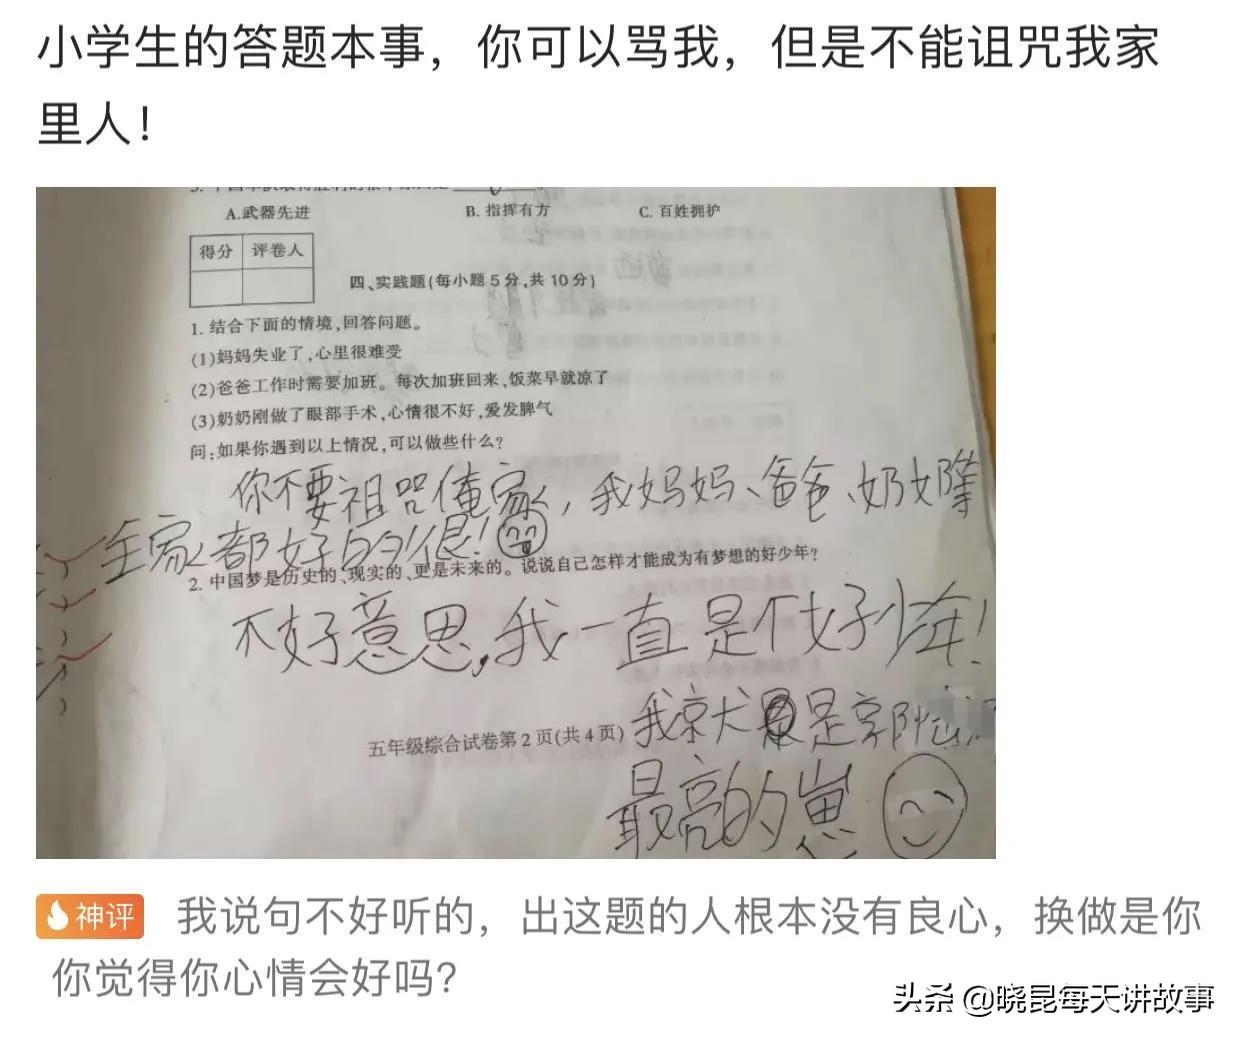 小学生的答题本事，你可以骂我，但是不能诅咒我家
里人！
A.武器先进 B. 指挥有方 C. 百姓拥护
得分 评卷人
四、实践题(每小题5分,共10分)
1. 结合下面的情境,回答问题。
(1)妈妈失业了,心里很难受
(2)爸爸工作时需要加班。每次加班回来,饭菜早就凉了
(3)奶奶刚做了眼部手术,心情很不好,爱发脾气
问:如果你遇到以上情况,可以做些什么?
你不要祖咒俺家，我妈妈、爸爸、奶奶等
全家都好的很!
2. 中国梦是历史的、现实的、更是未来的。说说自己怎样才能成为有梦想的好少年?
不好意思,我一直是个好少年!
我 是
五年级综合试卷第2页(共4页)
最亮的崽
神评 我说句不好听的，出这题的人根本没有良心，换做是你
你觉得你心情会好吗？
头条 @晓昆每天讲故事